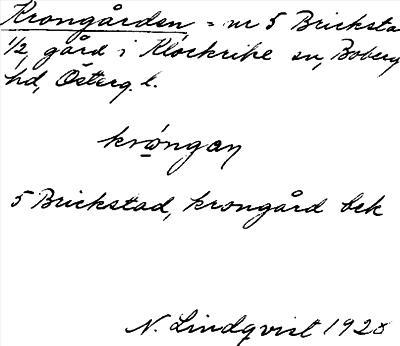 Krongården = nr 5 Bricksta
1/2, gård i Klockrike sn, Boberg
hd, Österg. l.
krón̥gan
5 Brickstad, krongård bek
N. Lindqvist 1928